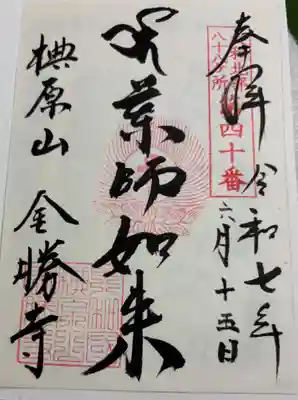 大和北部
八十八ヶ所
第四十番
奉拝
令和七年
六月十五日
薬師如来
椣原山
金勝寺